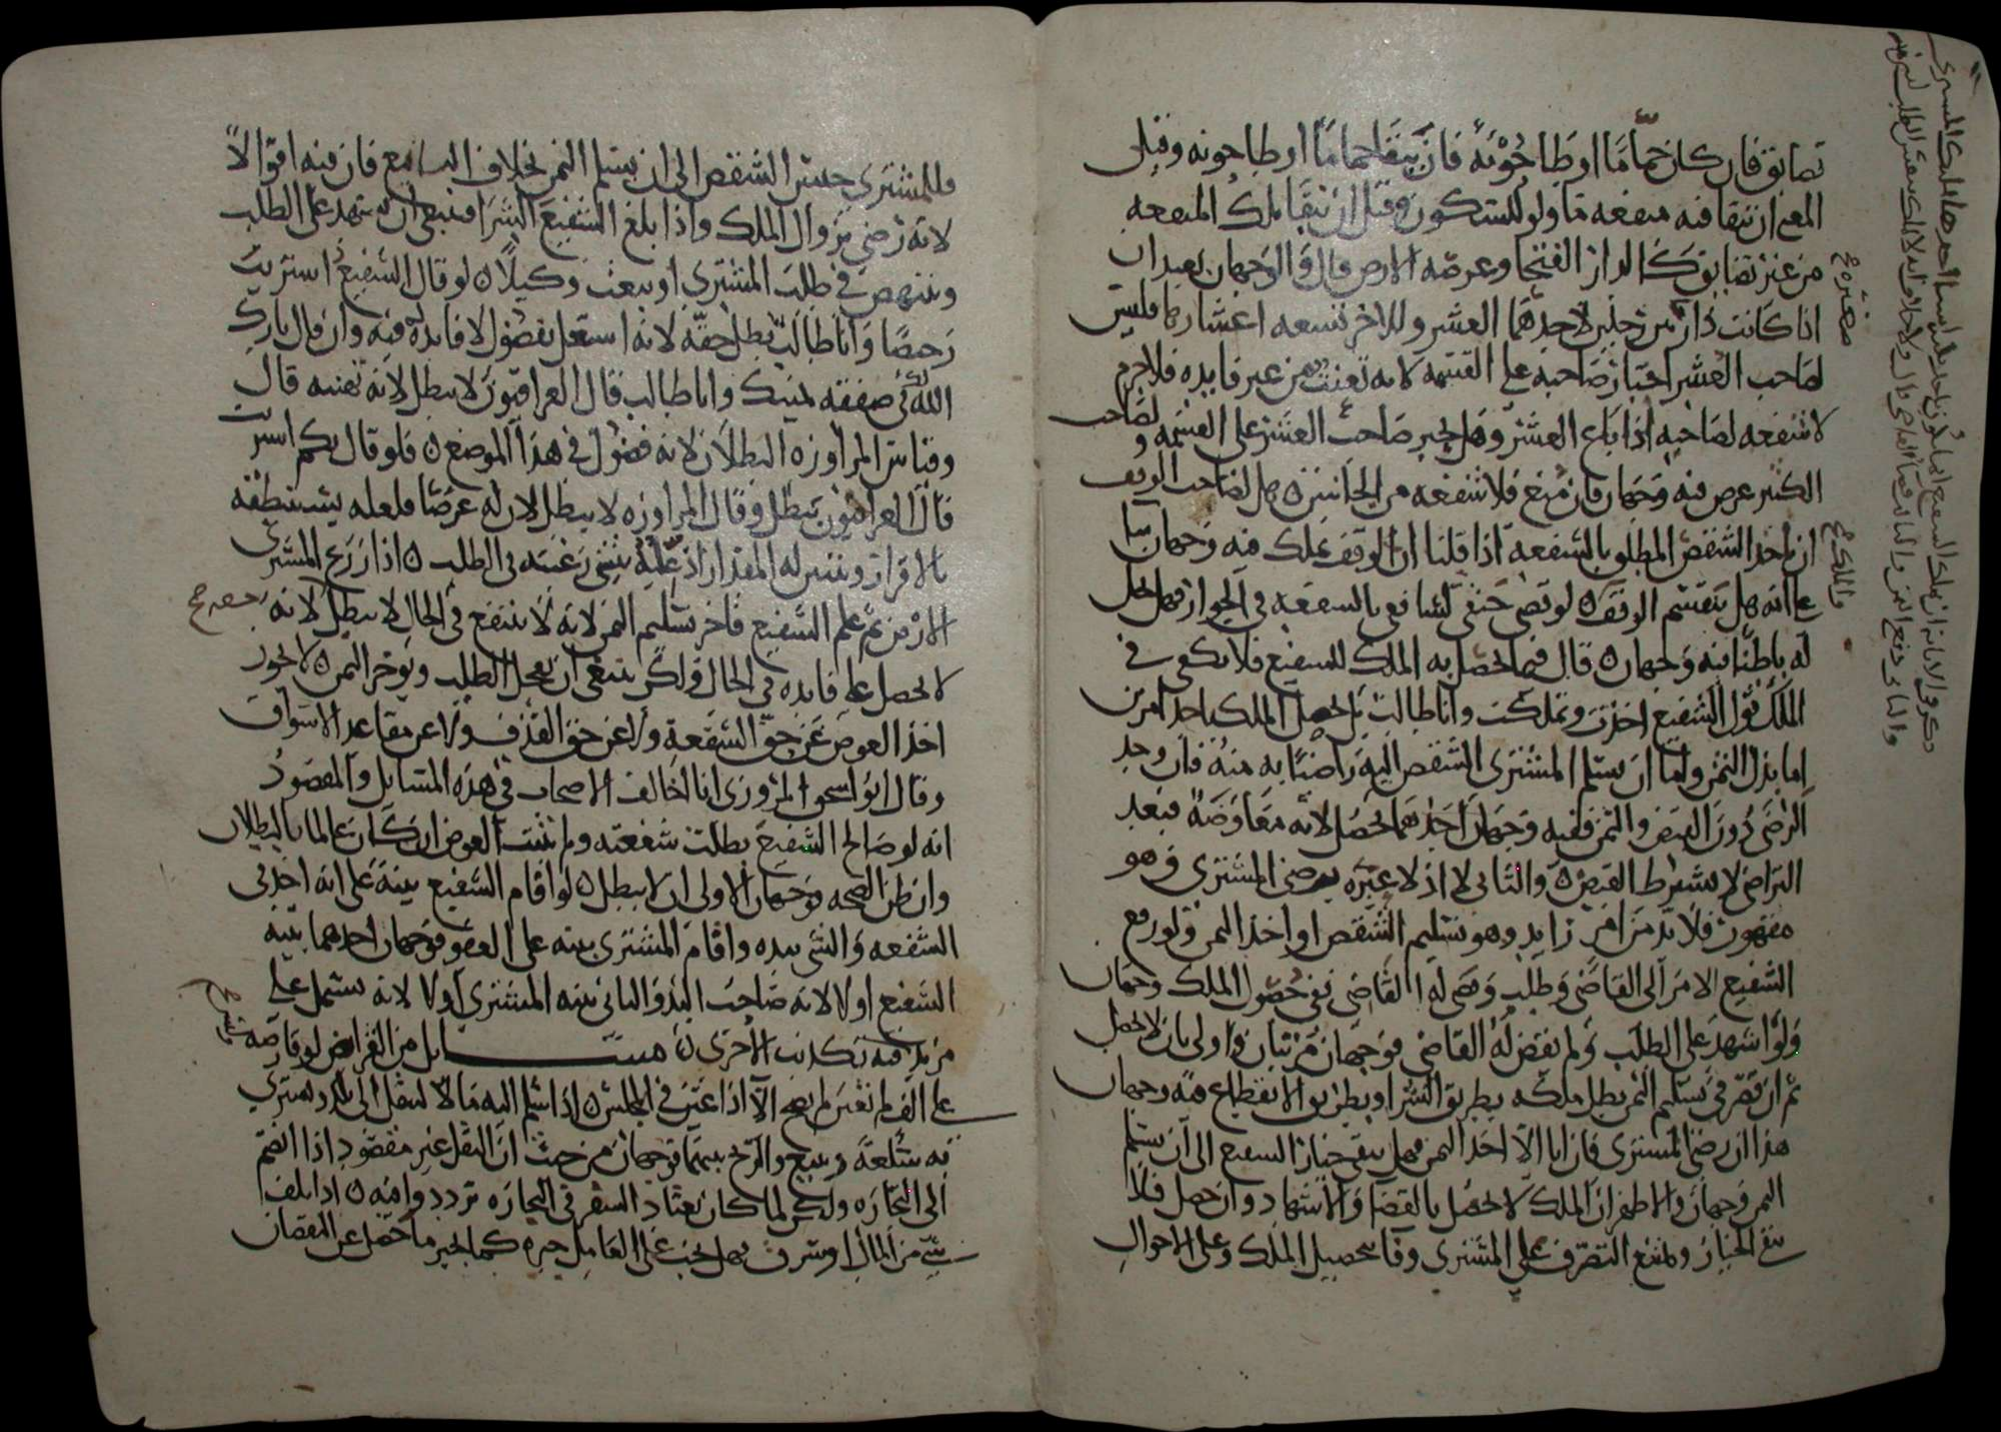 تضايق فان كان حماما او طاحونة فان يبقا حماما او طاحونه وقيل
المعي ان تبقا فيه منفعه ما ولو للسكون وقيل ان تبقا تلك المنفعه
من غير تضايق كالدار الفيحا وعرصه الارض قال والوجهان بعيدان
اذا كانت دار بين رجلين لاحدهما العشر وللاخر تسعه اعشارها فليس
لصاحب العشر اجبار صاحبه على القسمه لانه تعنت من غير فايده فلا جرم
لا شفعه لصاحبه اذا باع العشر وهل يجبر صاحب العشر على القسمه ولصاحب
الكثير عرض فيه وجهان فان منع فلا شفعه من الجانبين هل لصاحب الوقف
ان ياخذ الشقص المطلوب بالشفعه اذا قلنا ان الوقف يملك فيه وجهان بنا
على انه هل يقسم الوقف لو قضى حنفى لشافعى بالشفعه في الجوار فهل يحل
له باطنا فيه وجهان قال فيما يحصل به الملك للشفيع فلا يكفى في
الملك قول الشفيع اخذت وتملكت وانا طالب بل يحصل الملك باحد امرين
اما بذل الثمن واما ان يسلم المشترى الشقص اليه راضيا به منه فان وجد
الرضى دون القبض والثمن ففيه وجهان احدهما يحصل لانه معاوضة فبعد
التراضى لا يشترط القبض والثانى لا اذ لا عبره برضى المشترى وهو
مقهور فلا بد من امر زايد وهو تسليم الشقص او اخذ الثمن ولو رفع
الشفيع الامر الى القاضى وطلب وقضى له القاضى ففى حصول الملك وجهان
ولو اشهد على الطلب ولم يقض له القاضى فوجهان مرتبان واولى بان لا يحصل
ثم ان قصر في تسليم الثمن بطل ملكه بطريق التبين او بطريق الانقطاع فيه وجهان
هذا ان رضى المشترى فان ابا الا اخذ الثمن فهل يبقى خيار الشفيع الى ان يسلم
الثمن وجهان والاظهر ان الملك لا يحصل بالقضا والاشهاد وان حصل فلا
يبقى الخيار ويمتنع التصرف على المشترى وفا بتحصيل الملك وعلى الاحوال
صغيره صح
والملك صح
فللمشترى حبس الشقص الى ان يسلم الثمن بخلاف البايع فان فيه اقوالا
لانه رضى بزوال الملك واذا بلغ الشفيع الشرا فينبغى ان يشهد على الطلب
وينهض في طلب المشترى او يبعث وكيلا لو قال الشفيع اشتريت
رخيصا وانا طالب بطل حقه لانه استعمل بفضول لا فايده فيه وان قال بارك
الله لك في صفقه يمينك وانا طالب قال العراقيون لا يبطل لانه تهنيه قال
وقياس المراوزه البطلان لانه فضول في هذا الموضع فلو قال بكم اشتريت
قال العراقيون يبطل وقال المراوزه لا يبطل لان له غرضا فلعله يستنطقه
بالاقرار ويتبين له المقدار اذ عليه يبتنى رغبته فى الطلب اذا زرع المشترى
الارض ثم علم الشفيع فاخر تسليم الثمن لانه لا ينتفع في الحال لا يبطل لانه
لا يحصل على فايده في الحال ولكن ينبغى ان يعجل الطلب ويوخر الثمن لا يجوز
اخذ العوض عن حق الشفعة ولا عن حق القذف ولا عن مقاعد الاسواق
وقال ابو اسحق المروزى انا اخالف الاصحاب في هذه المسايل والمقصود
انه لو صالح الشفيع بطلت شفعته ولم يثبت العوض ان كان عالما بالبطلان
وان ظن الصحه فوجهان الاولى ان لا يبطل لو اقام الشفيع بينة على انه اخذنى
الشفعه والشى بيده واقام المشترى بينه على العفو فوجهان احدهما بينه
الشفيع اولا لانه صاحب اليد والثانى بينه المشترى اولا لانه يشتمل على
مزيد فيه تكذيب الاخرى مسايل من القراض لو قارضه
على الف لم تعين لم يصح الا اذا عين في المجلس اذا سلم اليه مالا لينقل الى بلد ويشترى
به سلعة ويبيع والربح بينهما فوجهان من حيث ان النقل غير مقصود اذا انضم
الى التجاره ولكن لما كان يعتاد السفر فى التجاره ترددوا فيه اذا تلف
شى من المال او سرق فهل يجب على العامل جبره كما يجبر ما حصل عن النقصان